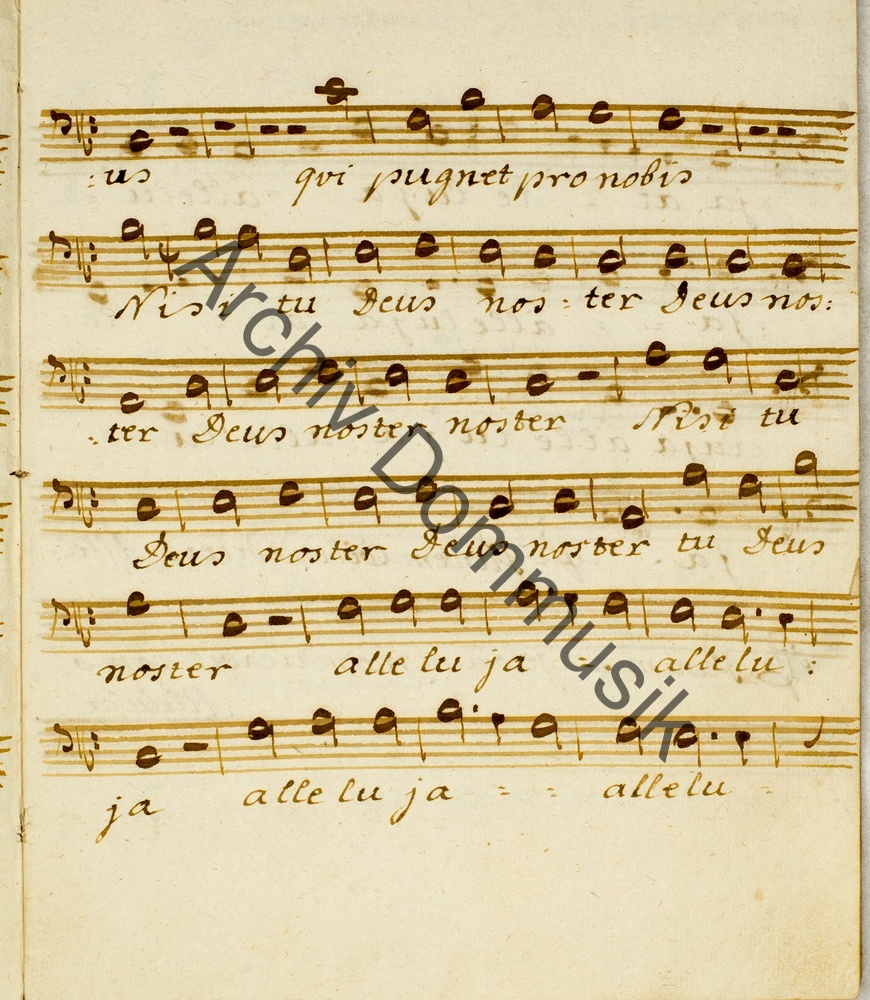 :us qvi pugnet pro nobis
Nisi tu Deus nos: ter Deus nos:
:ter Deus noster noster Nisi tu
Deus noster Deus noster tu Deus
noster alle lu ja -- allelu :
ja alle lu ja = = allelu =
Archiv Dommusik